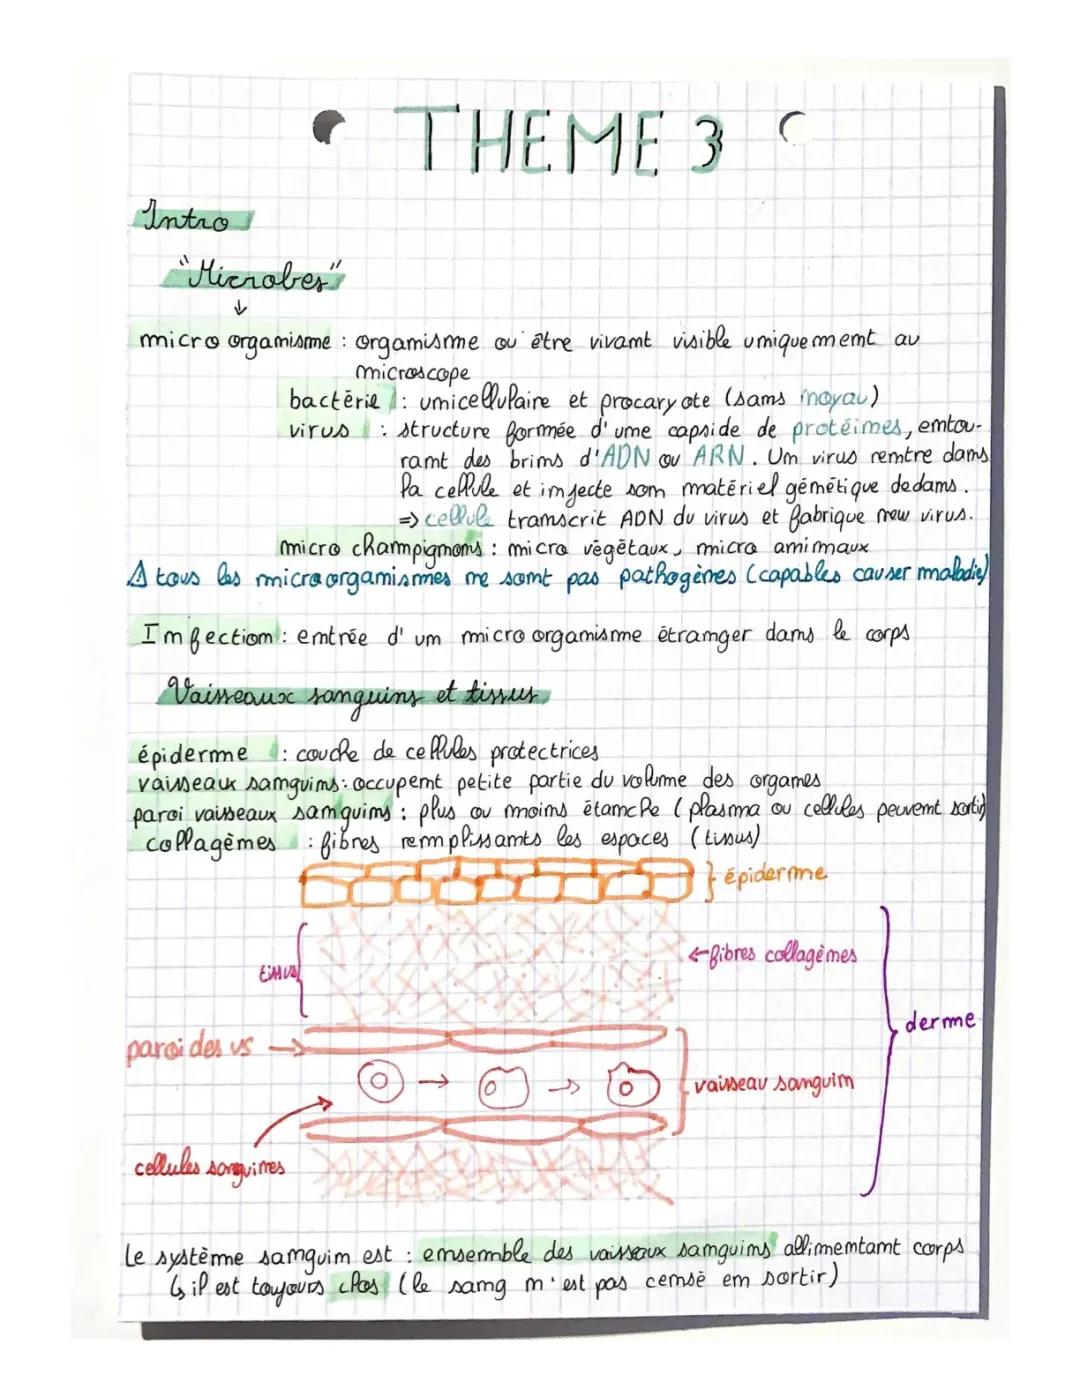 THEME 3
Intro
"Microbes"
↓
micro organisme : organisme ou être vivant visible uniquement au
microscope
bactérie : unicellulaire et procaryote (sans noyau)
virus : structure formée d'une capside de protéines, entou-
rant des brins d'ADN ou ARN. Un virus rentre dans
la cellule et injecte son matériel génétique dedans.
⇒ cellule transcrit ADN du virus et fabrique new virus.
micro champignons : micro végétaux, micro animaux
⚠ tous les microorganismes ne sont pas pathogènes (capables causer maladie)
Infection : entrée d'un micro organisme étranger dans le corps
Vaisseaux sanguins et tissus
épiderme : couche de cellules protectrices
vaisseaux sanguins : occupent petite partie du volume des organes
paroi vaisseaux sanguins : plus ou moins étanche (plasma ou cellules peuvent sortir)
collagènes : fibres remplissants les espaces (tissus)
épiderme
← fibres collagènes
tissus
derme
paroi des vs →
vaisseau sanguin
cellules sanguines
Le système sanguin est : ensemble des vaisseaux sanguins allimentant corps
↳ il est toujours clos (le sang n'est pas censé en sortir)